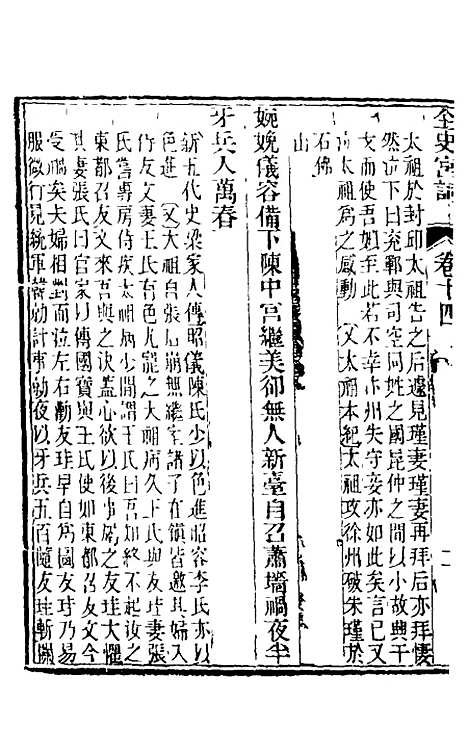 全史宮詞 卷十四
太祖於封邱太祖告之后遽見瑾妻瑾妻再拜后亦拜悽
然泣下曰兗鄆與司空同姓之國昆仲之間以小故興干
戈而使吾姒至此若不幸汴州失守妾亦如此矣言已又
泣太祖為之感動 又太祖本紀太祖攻徐州破朱瑾於
石佛
山
婉娩儀容備下陳中宮繼美卻無人新臺自召蕭墻禍夜半
牙兵入萬春
新五代史梁家人傳昭儀陳氏少以色進昭容李氏亦以
色進 又太祖自張后崩無繼室諸子在鎮皆邀其婦入
侍友文妻王氏有色尤寵之太祖病久王氏與友珪妻張
氏常專房侍疾太祖病少間謂王氏曰吾知終不起汝之
東都召友文來吾與之決蓋心欲以後事屬之友珪大懼
其妻張氏曰官家以傳國寶與王氏使如東都召友文今
受禍矣夫婦相對而泣左右勸友珪早自為圖友珪乃易
服微行見統軍韓勍計事勍夜以牙兵五百隨友珪斬關